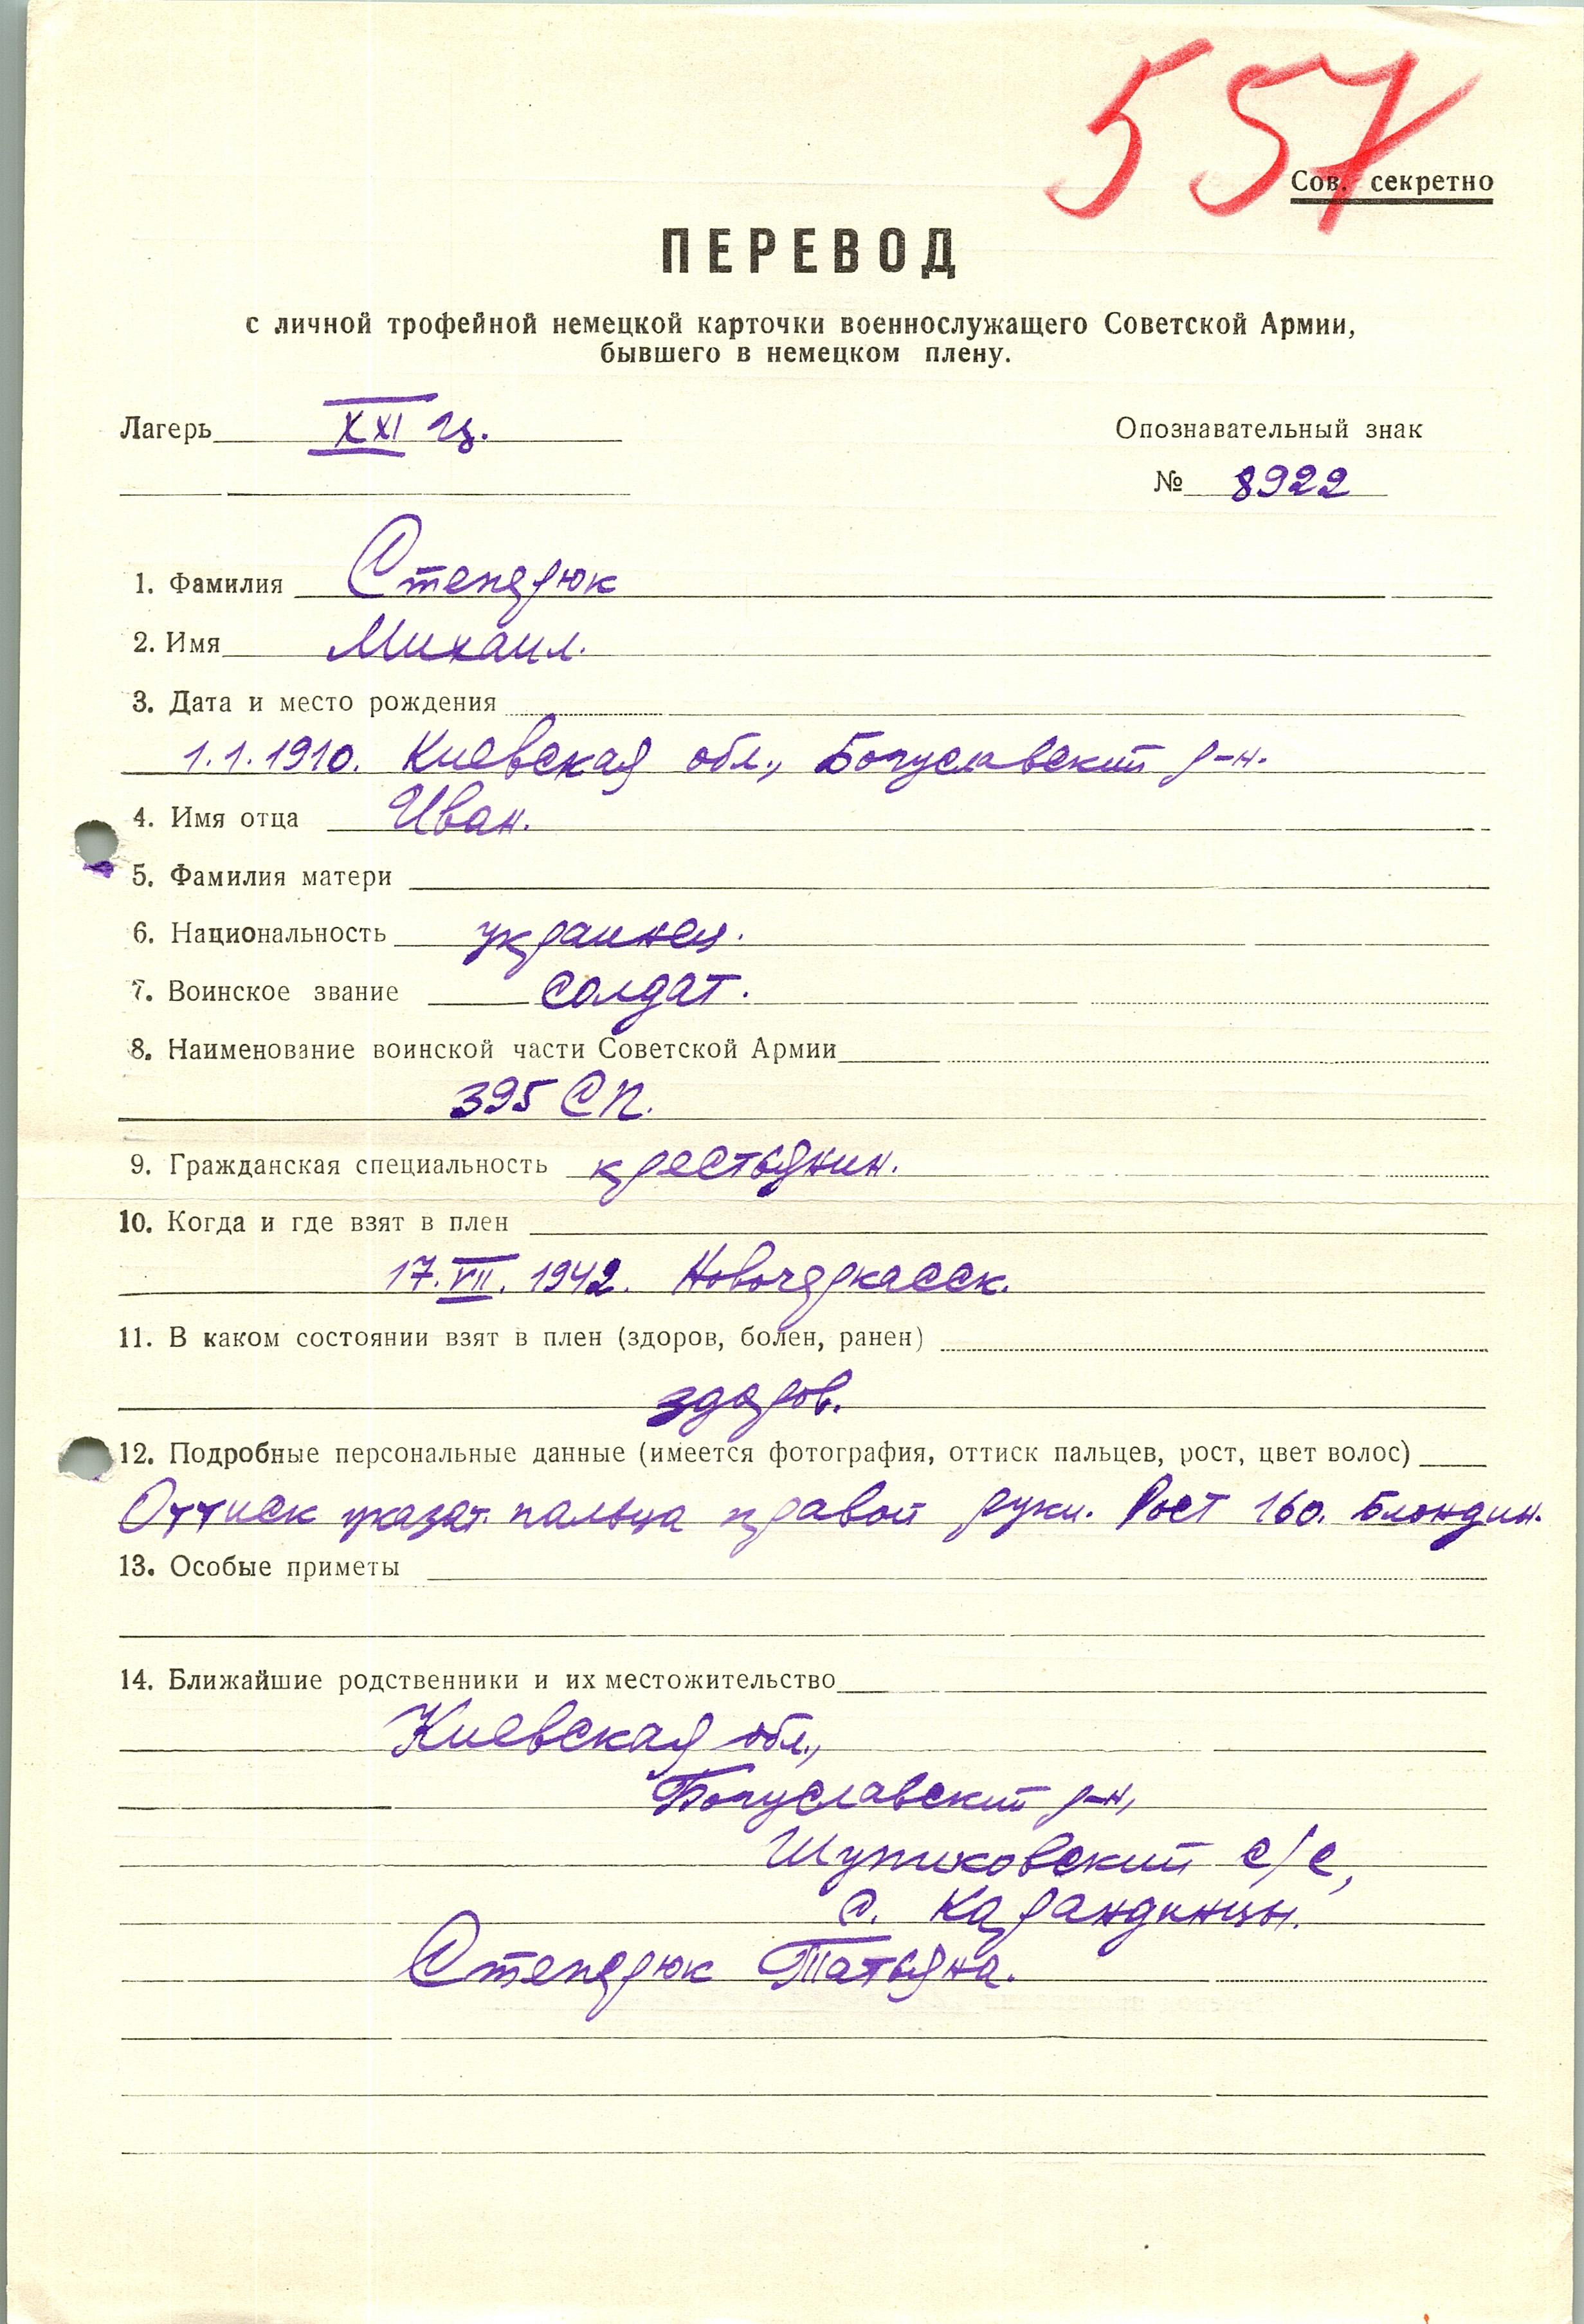 557
Сов. секретно
ПЕРЕВОД
с личной трофейной немецкой карточки военнослужащего Советской Армии,
бывшего в немецком плену.
Лагерь XXI ц.
Опознавательный знак
№ 8922
1. Фамилия Степерюк
2. Имя Михаил.
3. Дата и место рождения
1.1.1910. Киевская обл., Богуславский р-н.
4. Имя отца Иван.
5. Фамилия матери
6. Национальность украинец.
7. Воинское звание солдат.
8. Наименование воинской части Советской Армии
395 СП.
9. Гражданская специальность крестьянин.
10. Когда и где взят в плен
17.VII.1942. Новочеркасск.
11. В каком состоянии взят в плен (здоров, болен, ранен)
здоров.
12. Подробные персональные данные (имеется фотография, оттиск пальцев, рост, цвет волос)
Оттиск указат. пальца правой руки. Рост 160. Блондин.
13. Особые приметы
14. Ближайшие родственники и их местожительство
Киевская обл.,
Богуславский р-н,
с/с,
с. Карандинцы.
Степерюк Татьяна.